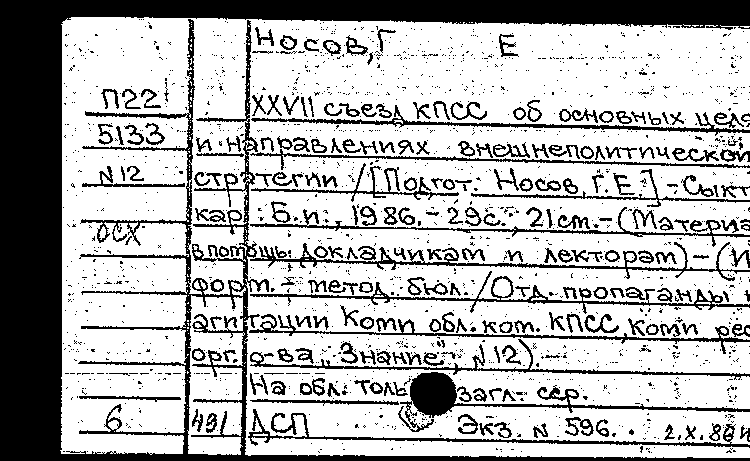 Носов, Г Е
П22 XXVII съезд КПСС об основных целя
5133 и направлениях внешнеполитической
N12 стратегии /[Подгот: Носов, Г.Е.]-Сыкт
кар : Б.и:, 1986.-29с.; 21см.-(Материа
ОСХ в помощь докладчикам и лекторам)-(И
форм.- метод. бюл. /Отд. пропаганды
агитации Коми обл. ком. КПСС, Коми рес
орг. о-ва „Знание", N12).-
На обл. толь загл. сер.
6 491 ДСП Экз. N 596. 2.X.86